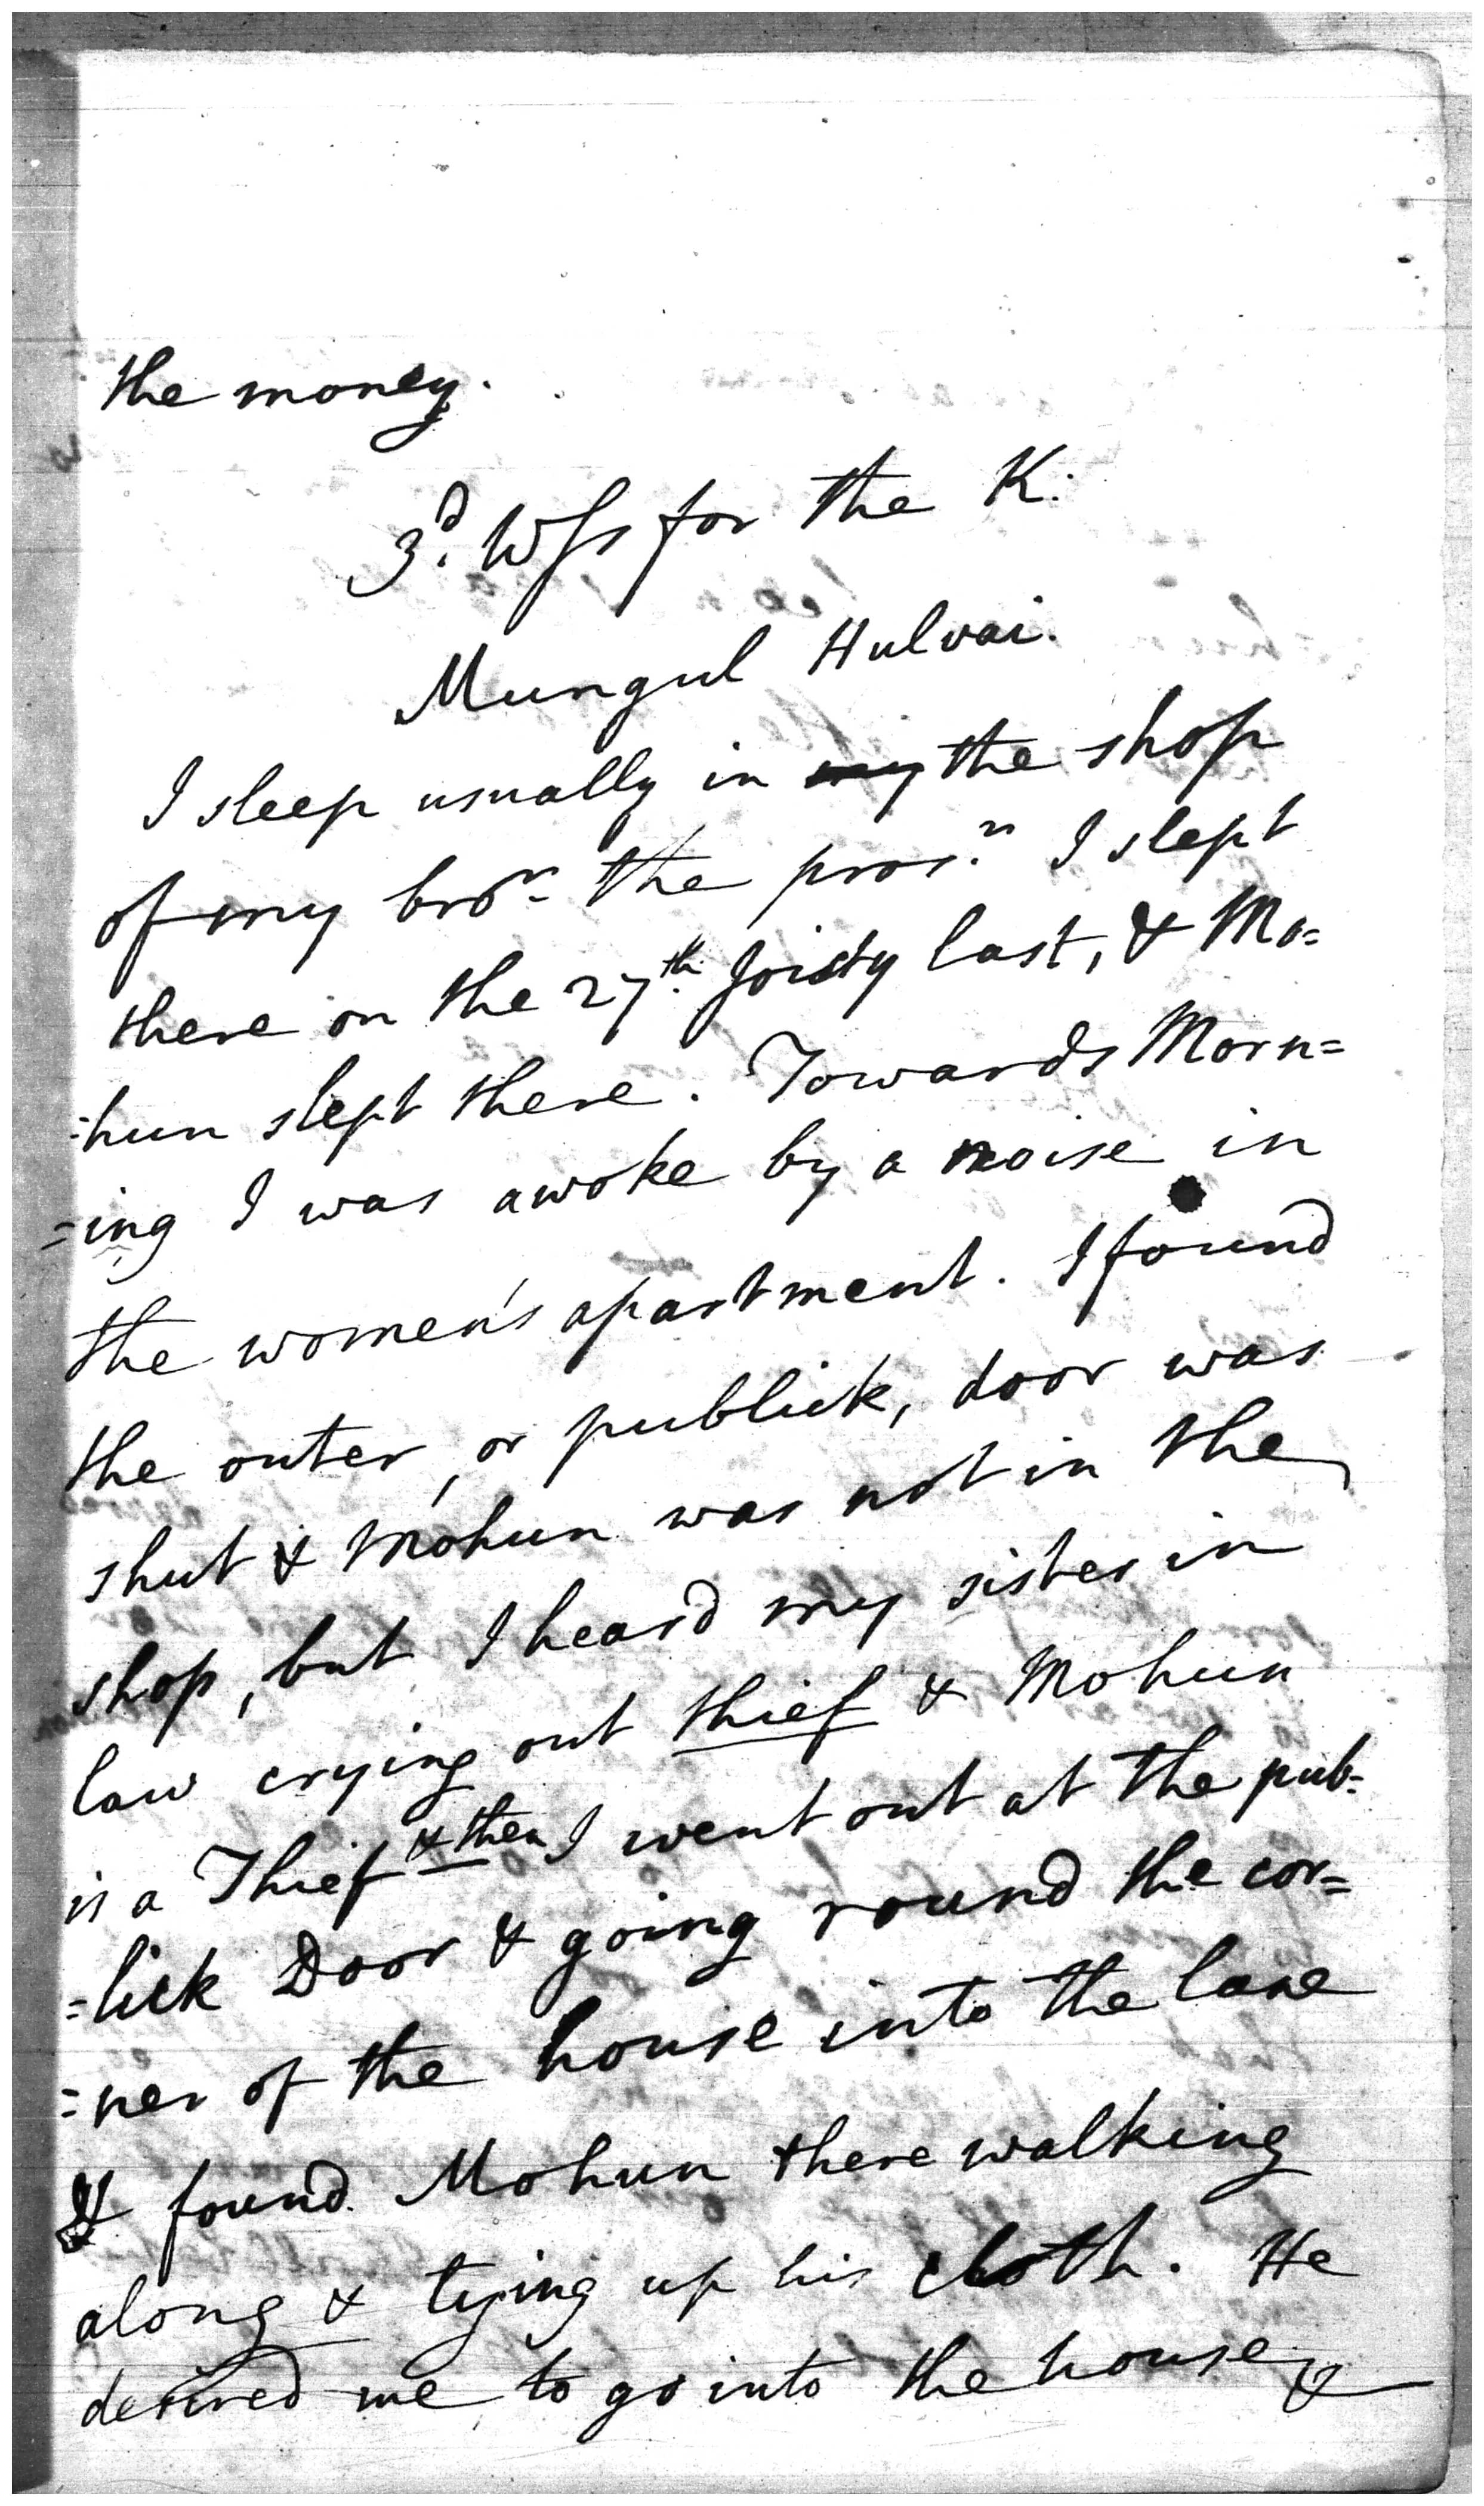 the money.
3d. Wss for the K.
Mungul Hulvai.
I sleep usually in my the shop
of my bror. the prosn. I slept
there on the 27th. Joisty last, & Mo=
=hun slept there. Towards Morn=
=ing I was awoke by a noise in
the women's apartment. I found
the outer, or publick, door was
shut & Mohun was not in the
shop, but I heard my sister in
law crying out thief & Mohun
is a Thief & then I went out at the pub=
=lick Door & going round the cor=
=ner of the house into the lane
I found Mohun there walking
along & tying up his cloth. He
desired me to go into the house &